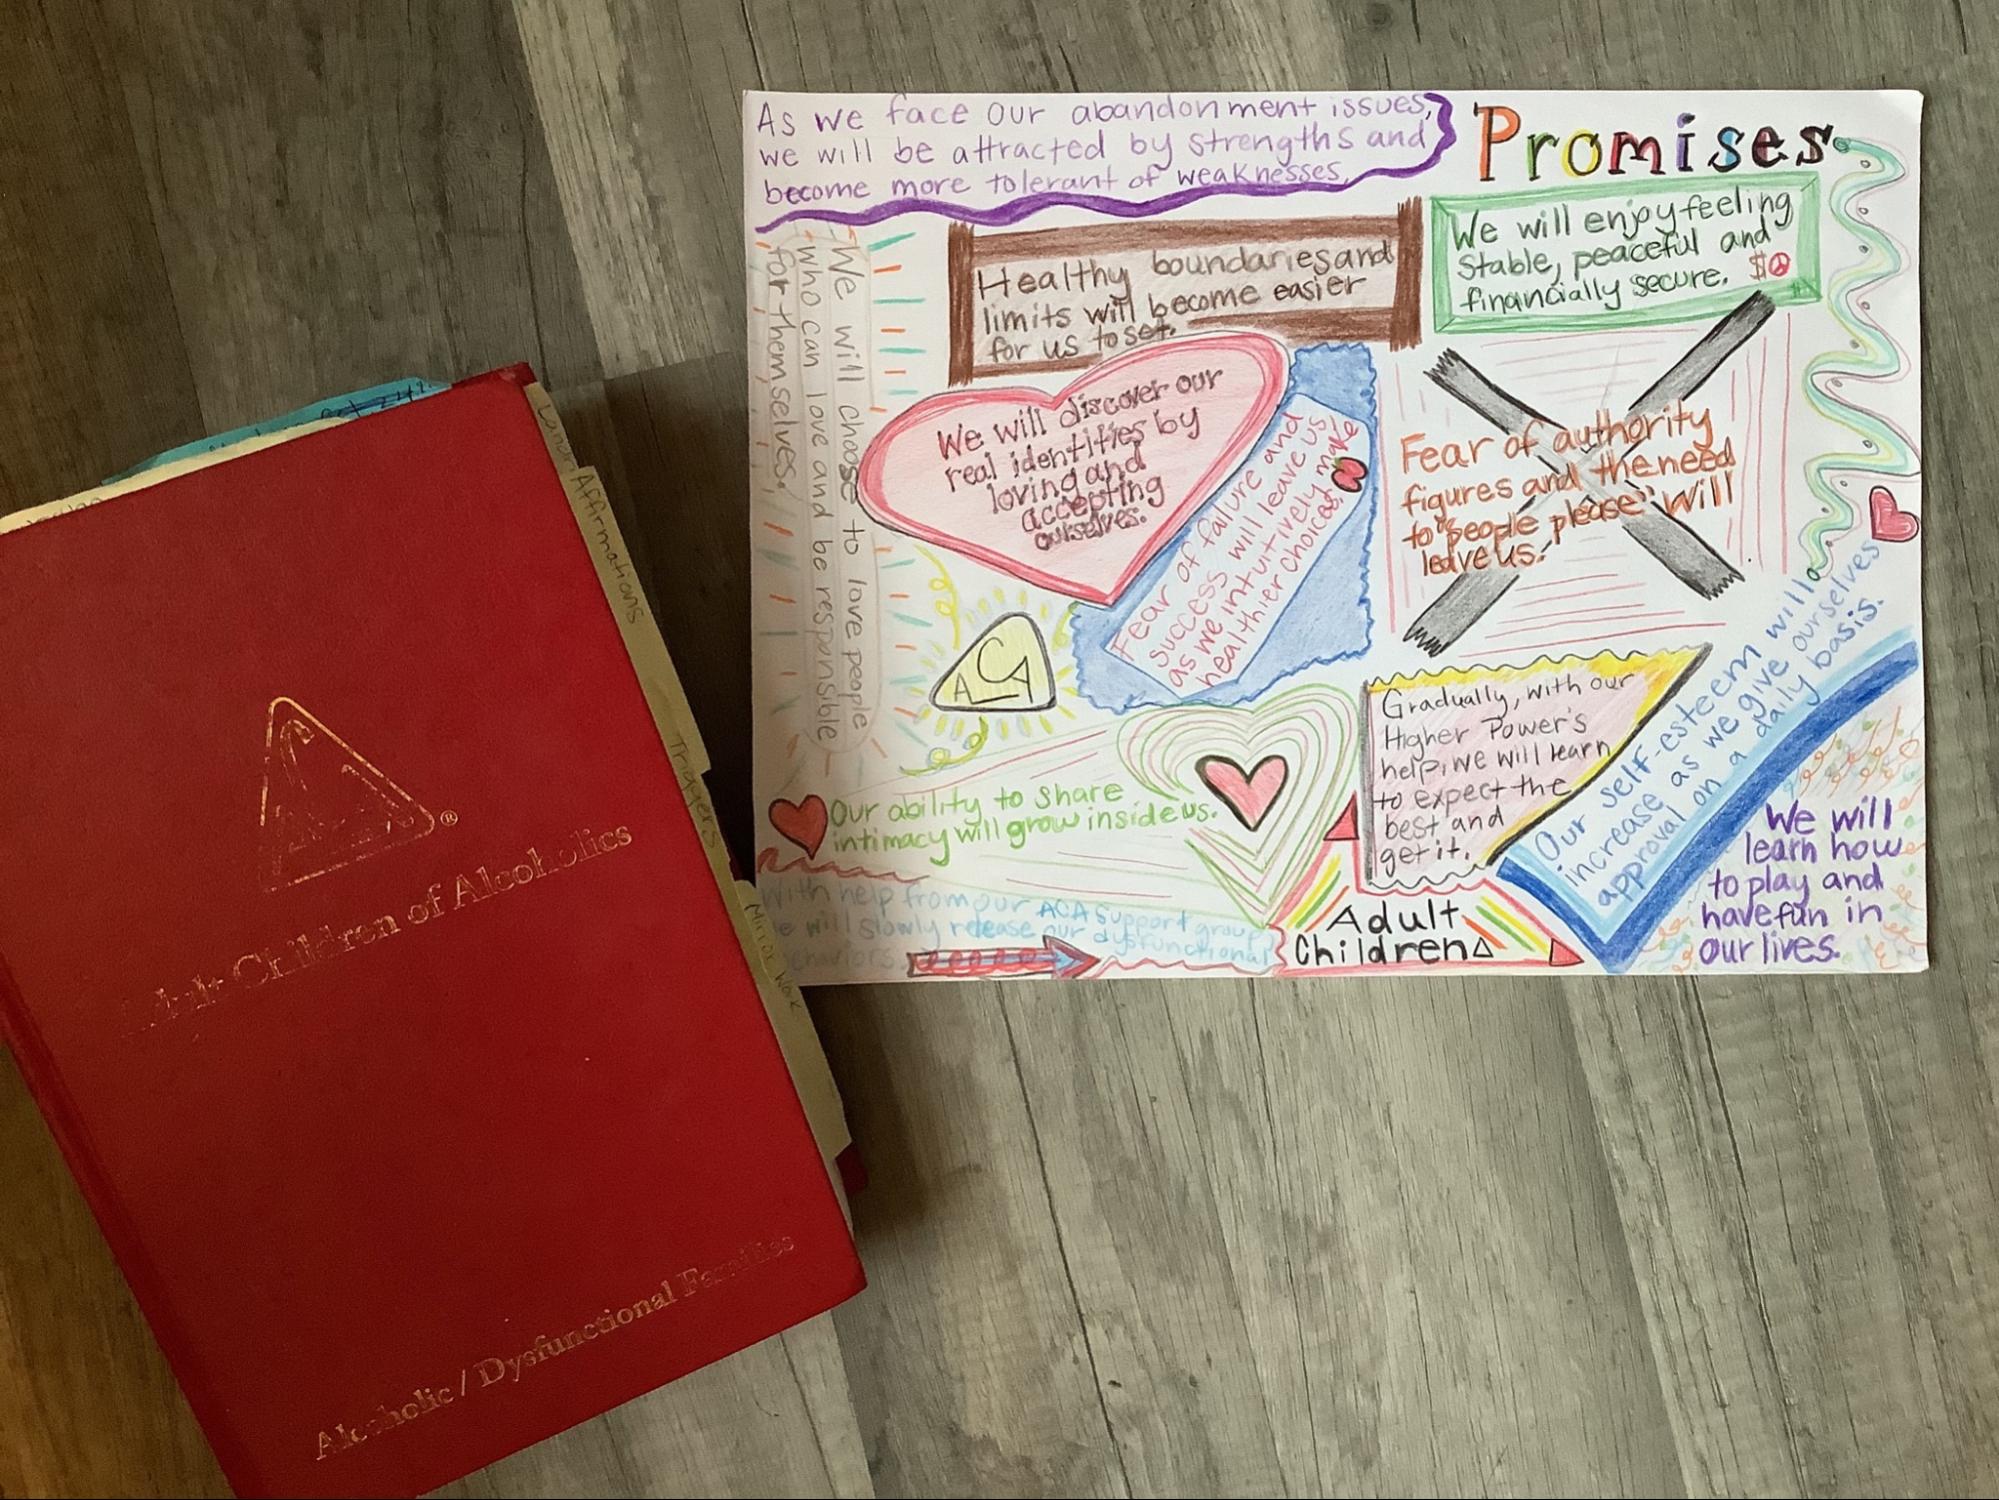 As we face our abandonment issues,
we will be attracted by strengths and
become more tolerant of weaknesses.
Promises
We will enjoy feeling
stable, peaceful and
financially secure. $
Healthy boundaries and
limits will become easier
for us to set.
We will choose to love people
who can love and be responsible
for themselves.
We will discover our
real identities by
loving and
accepting
ourselves.
Fear of failure and
success will leave us
as we intuitively make
healthier choices.
Fear of authority
figures and the need
to "people please" will
leave us.
ACA
Gradually, with our
Higher Power's
help, we will learn
to expect the
best and
get it.
Our self-esteem will
increase as we give ourselves
approval on a daily basis.
Our ability to share
intimacy will grow inside us.
With help from our ACA support group,
we will slowly release our dysfunctional
behaviors.
Adult
Children
We will
learn how
to play and
have fun in
our lives.
Affirmations
Triggers
Mirror Work
®
Adult Children of Alcoholics
Alcoholic / Dysfunctional Families